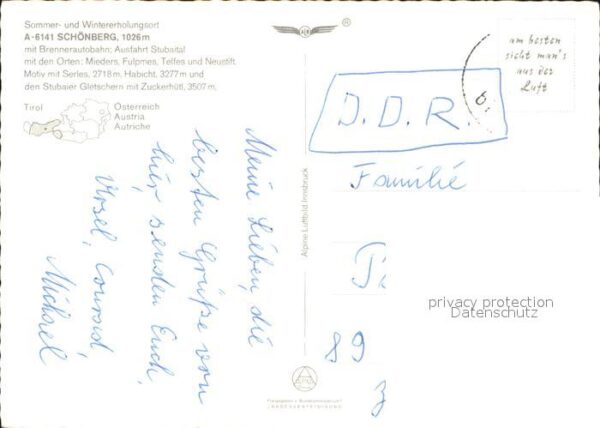 Sommer- und Wintererholungsort
A-6141 SCHÖNBERG, 1026 m
mit Brennerautobahn: Ausfahrt Stubaital
mit den Orten: Mieders, Fulpmes, Telfes und Neustift.
Motiv mit Serles, 2718 m, Habicht, 3277 m und
den Stubaier Gletschern mit Zuckerhütl, 3507 m.
Tirol
Österreich
Austria
Autriche
Meine Lieben, die
besten Grüße von
hier senden Euch
Ursel, Conrad,
Michael
Alpine Luftbild Innsbruck
®
am besten
sieht man's
aus der
Luft
6.
D.D.R.
Familie
89
privacy protection
Datenschutz
Freigegeben v. Bundesministerium f.
LANDESVERTEIDIGUNG